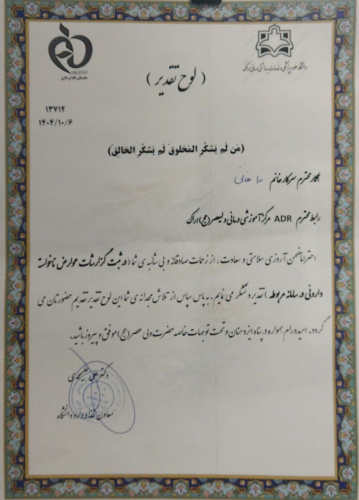 سازمان غذا و دارو
دانشگاه علوم پزشکی و خدمات بهداشتی درمانی اراک
( لوح تقدیر )
۱۳۷۱۲
۱۴۰۴/۱۰/۶
(مَن لَم یَشکُر المَخلوق لَم یَشکُر الخالِق)
همکار محترم سرکار خانم
رابط محترم ADR مرکز آموزشی درمانی ولیعصر (عج) اراک
احتراماً ضمن آرزوی سلامتی و سعادت، از زحمات صادقانه و بی شائبه ی شما (در ثبت گزارشات عوارض ناخواسته
دارویی در سامانه مربوطه) تقدیر و تشکر می نمایم. به پاس سپاس از تلاش مجدانه ی شما این لوح تقدیر تقدیم حضورتان می
گردد. امید دارم همواره در پناه ایزد منان و تحت توجهات خاصه حضرت ولی عصر (عج) موفق و پیروز باشید.
دکتر علی
معاون غذا و دارو دانشگاه